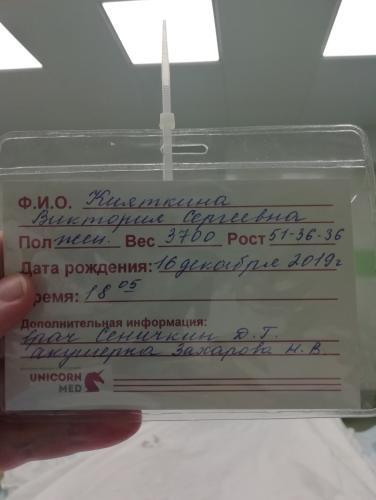 Ф.И.О. Кияткина
Виктория Сергеевна
Пол жен. Вес 3700 Рост 51-36-36
Дата рождения: 16 декабря 2019г
Время: 18 05
Дополнительная информация:
врач Сеничкин Д.Г.
акушерка Захарова Н.В.
UNICORN
MED